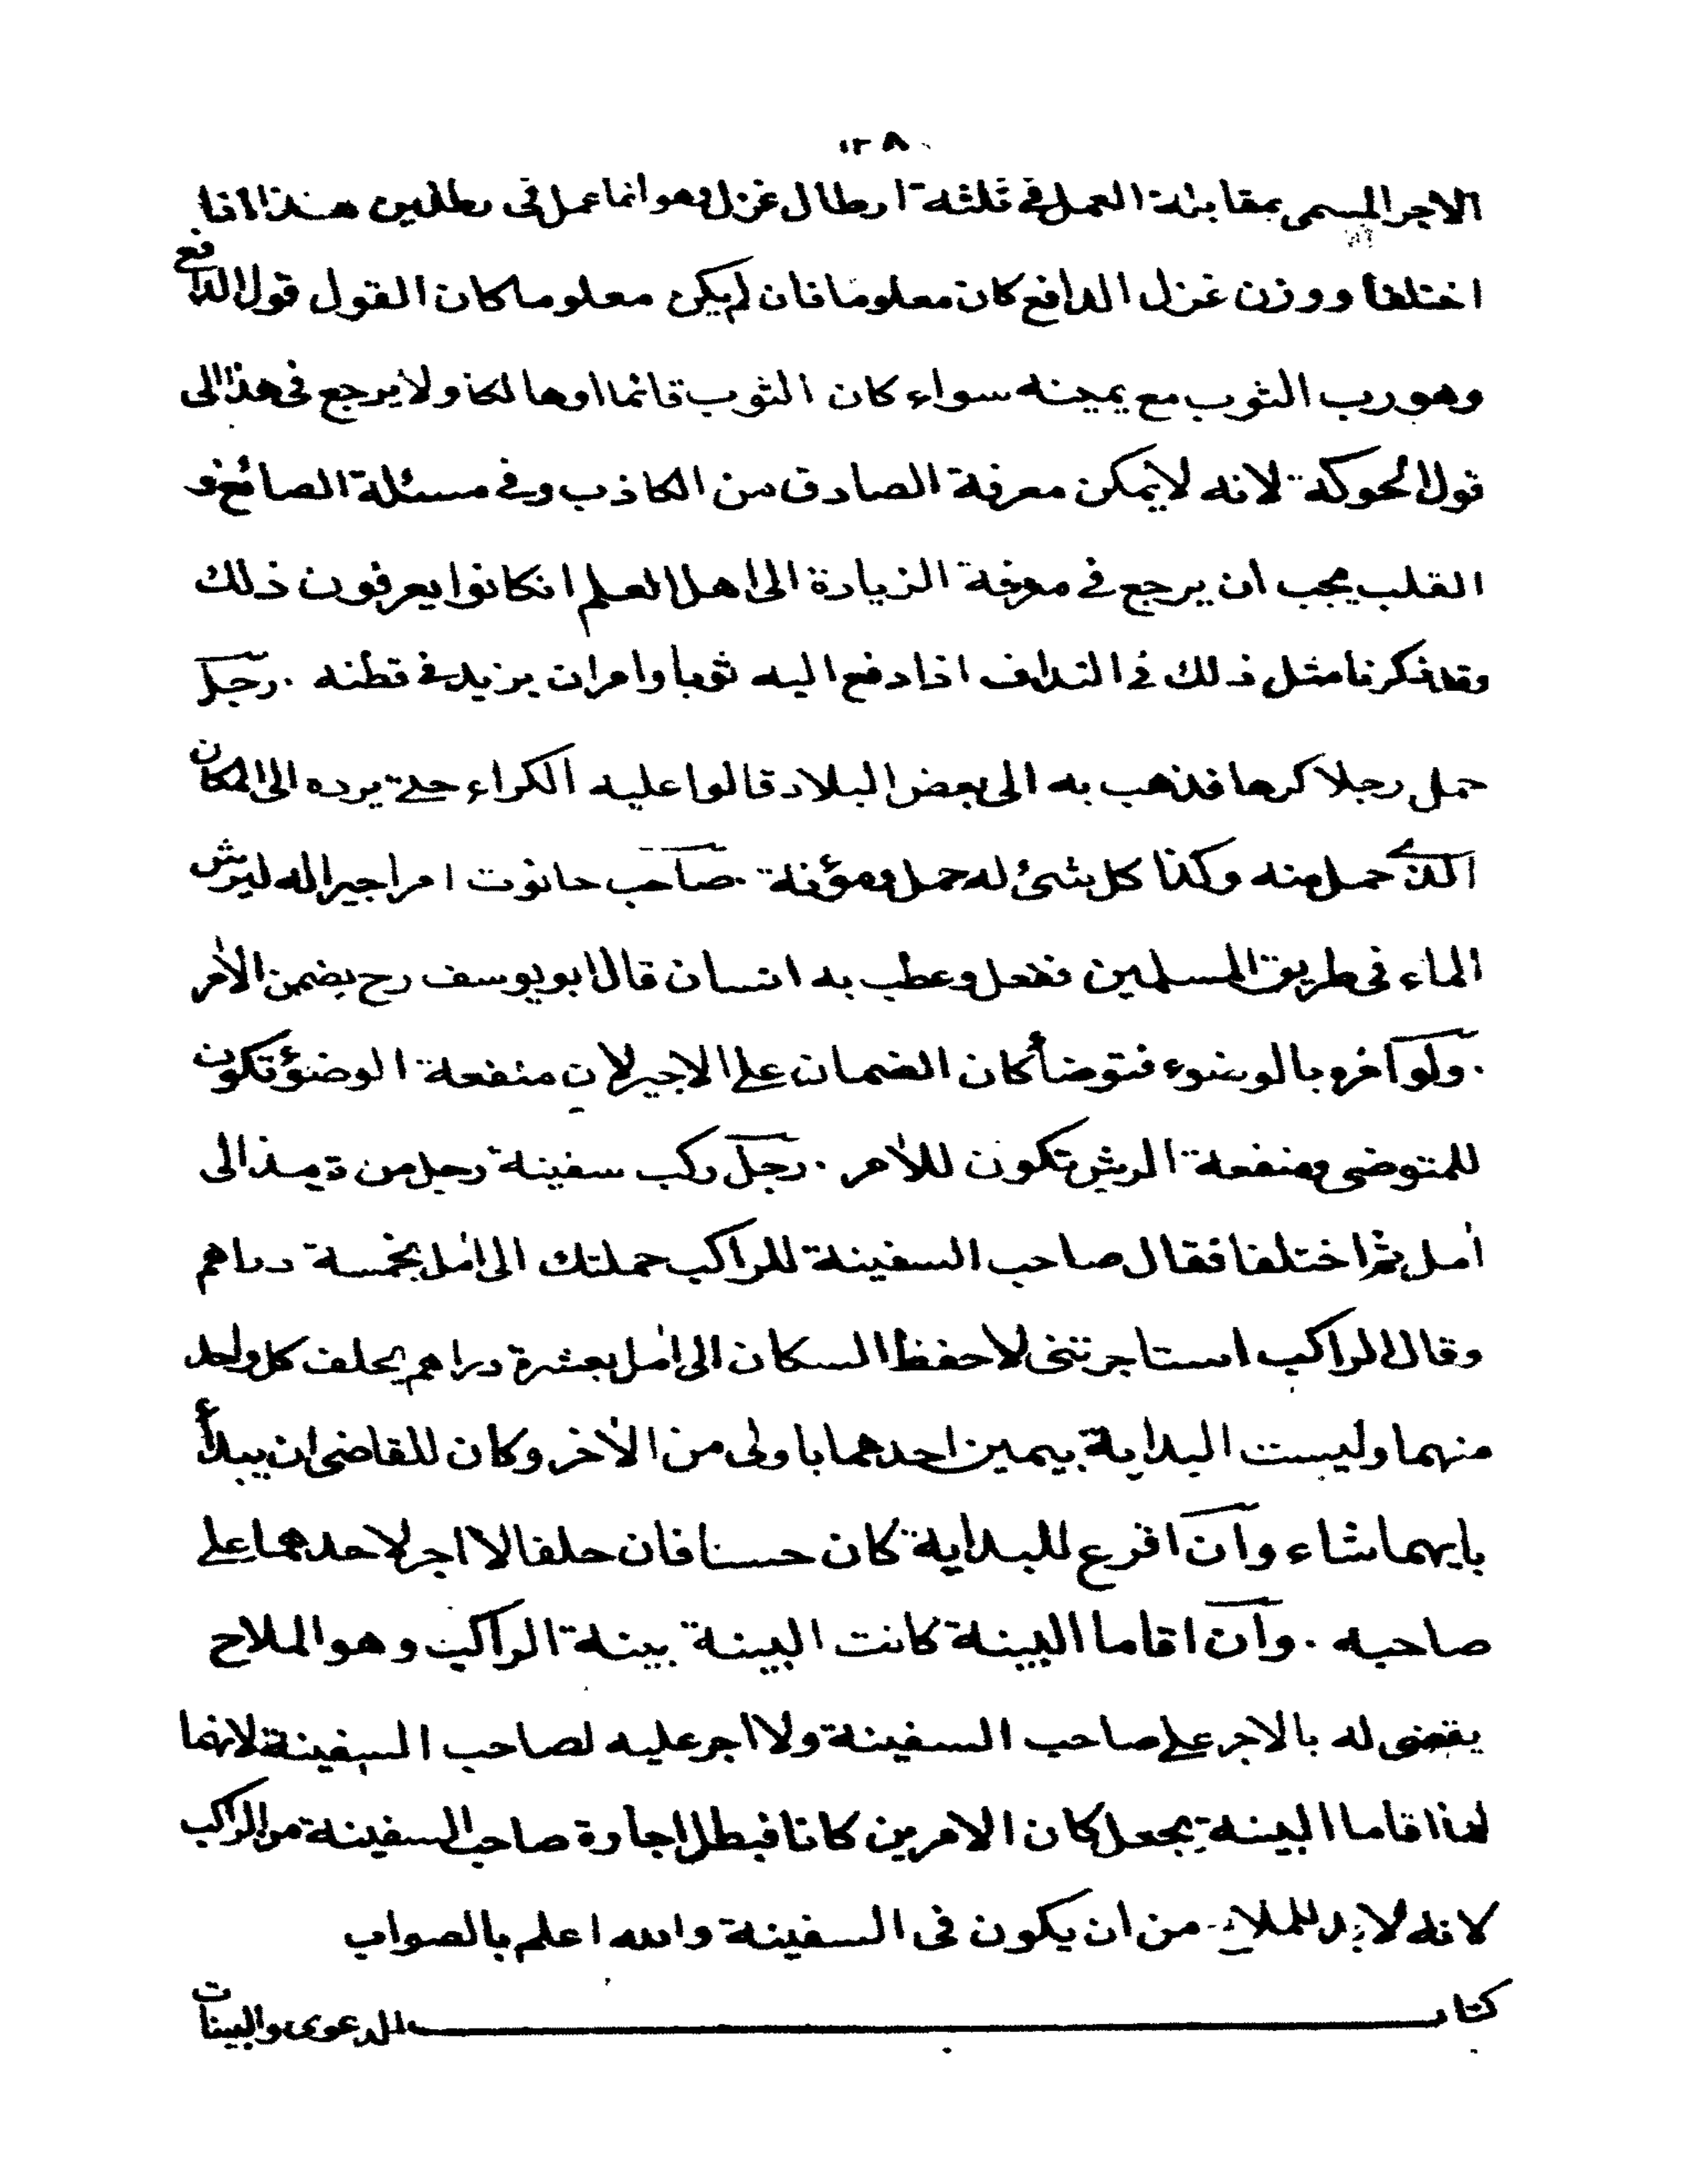 ١٢٨
الاجر المسمى بمقابلة العمل في ثلثة ارطال غزل وهو انما عمل في رطلين هذا اذا
اختلفا ووزن غزل الدافع كان معلوما فان لم يكن معلوما كان القول قول الدافع
وهو رب الثوب مع يمينه سواء كان الثوب قائما اوهالكا ولا يرجع في هذا الى
قول الحوكة لانه لا يمكن معرفة الصادق من الكاذب وفي مسئلة الصائغ و
القلب يجب ان يرجع في معرفة الزيادة الى اهل العلم انكانوا يعرفون ذلك
وقد ذكرنا مثل ذلك في النداف اذا دفع اليه ثوبا وامر ان يزيد في قطنه . رجل
حمل رجلا كرها فذهب به الى بعض البلاد قالوا عليه الكراء حتى يرده الى المكان
الذي حمل منه وكذا كل شئ له حمل ومؤنة . صاحب حانوت امر اجيرا له ليرش
الماء في طريق المسلمين ففعل وعطب به انسان قال ابو يوسف رح يضمن الآمر
. ولو امره بالوضوء فتوضأ كان الضمان على الاجير لان منفعة الوضوء تكون
للمتوضى ومنفعة الرش تكون للآمر . رجل ركب سفينة رجل من ترمذ الى
آمل ثم اختلفا فقال صاحب السفينة للراكب حملتك الى آمل بخمسة دراهم
وقال الراكب استاجرتنى لاحفظ السكان الى آمل بعشرة دراهم يحلف كل واحد
منهما وليست البداية بيمين احدهما باولى من الآخر وكان للقاضى ان يبدأ
بايهما شاء وان اقرع للبداية كان حسنا فان حلفا لا اجر لاحدهما على
صاحبه . وان اقاما البينة كانت البينة بينة الراكب وهو الملاح
يقضى له بالاجر على صاحب السفينة ولا اجر عليه لصاحب السفينة لانهما
لما اقاما البينة يجعل كان الامرين كانا فبطل اجارة صاحب السفينة من الراكب
لانه لا بد للملاح من ان يكون في السفينة والله اعلم بالصواب
كتاب الدعوى والبينات